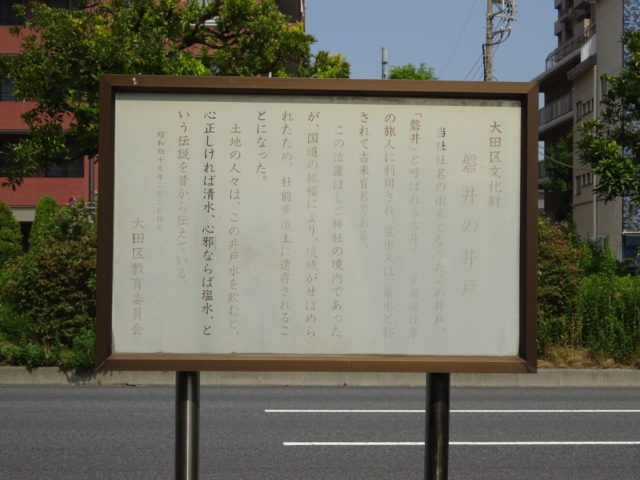 大田区文化財
磐井の井戸
当社社名の由来となったこの井戸は、
「磐井」と呼ばれる古井で、東海道往来
の旅人に利用され、霊水又は、薬水と称
されて古来有名である。
この位置はもと神社の境内であった
が、国道の拡幅により、境域がせばめら
れたため、社前歩道上に遺存されるこ
とになった。
土地の人々は、この井戸水を飲むと、
心正しければ清水、心邪ならば塩水、と
いう伝説を昔から伝えている。
昭和四十九年二月二日指定
大田区教育委員会